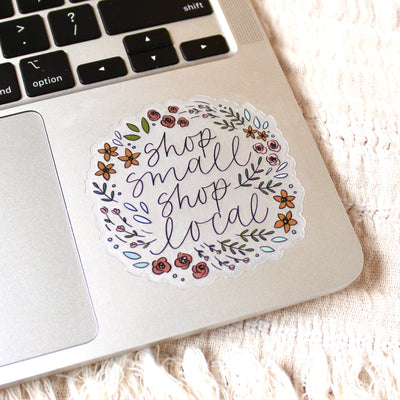 shift
option
shop
small
shop
local